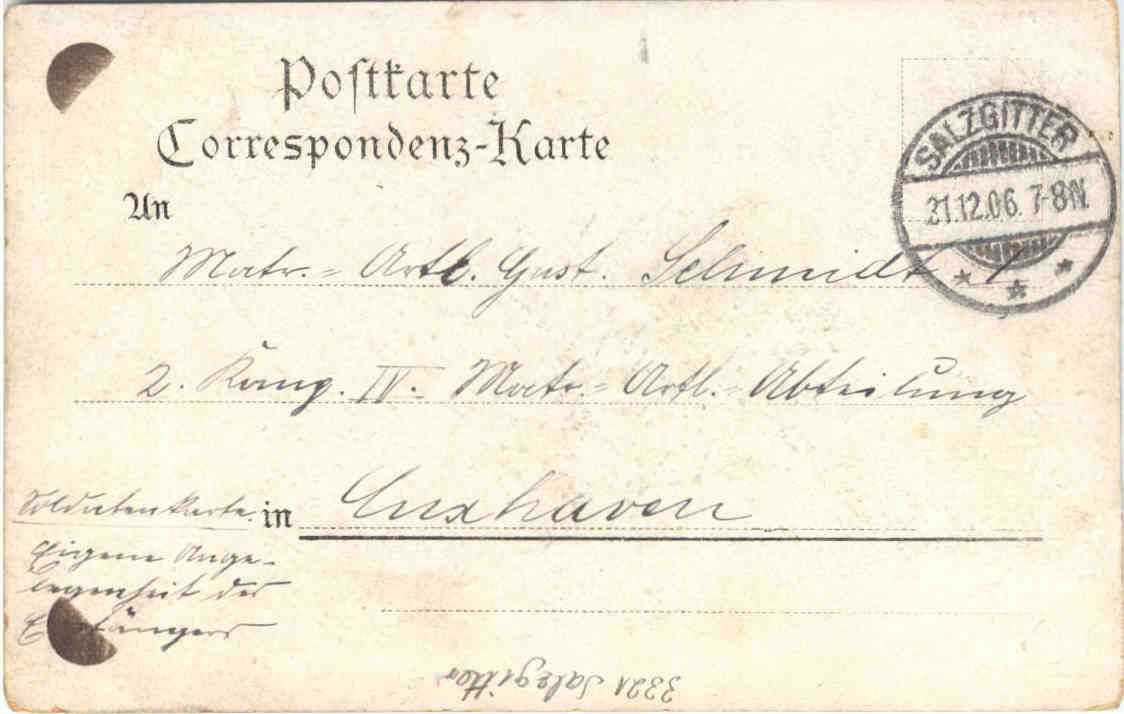 Postkarte
Correspondenz-Karte
SALZGITTER
21.12.06. 7-8N.
An
Matr.- Artl. Gust. Schmidt I
2. Komp. IV. Matr.- Artl.- Abteilung
Soldatenkarte.
in Cuxhaven
Eigene Ange-
legenheit des
Empfängers
3321 Salzgitter